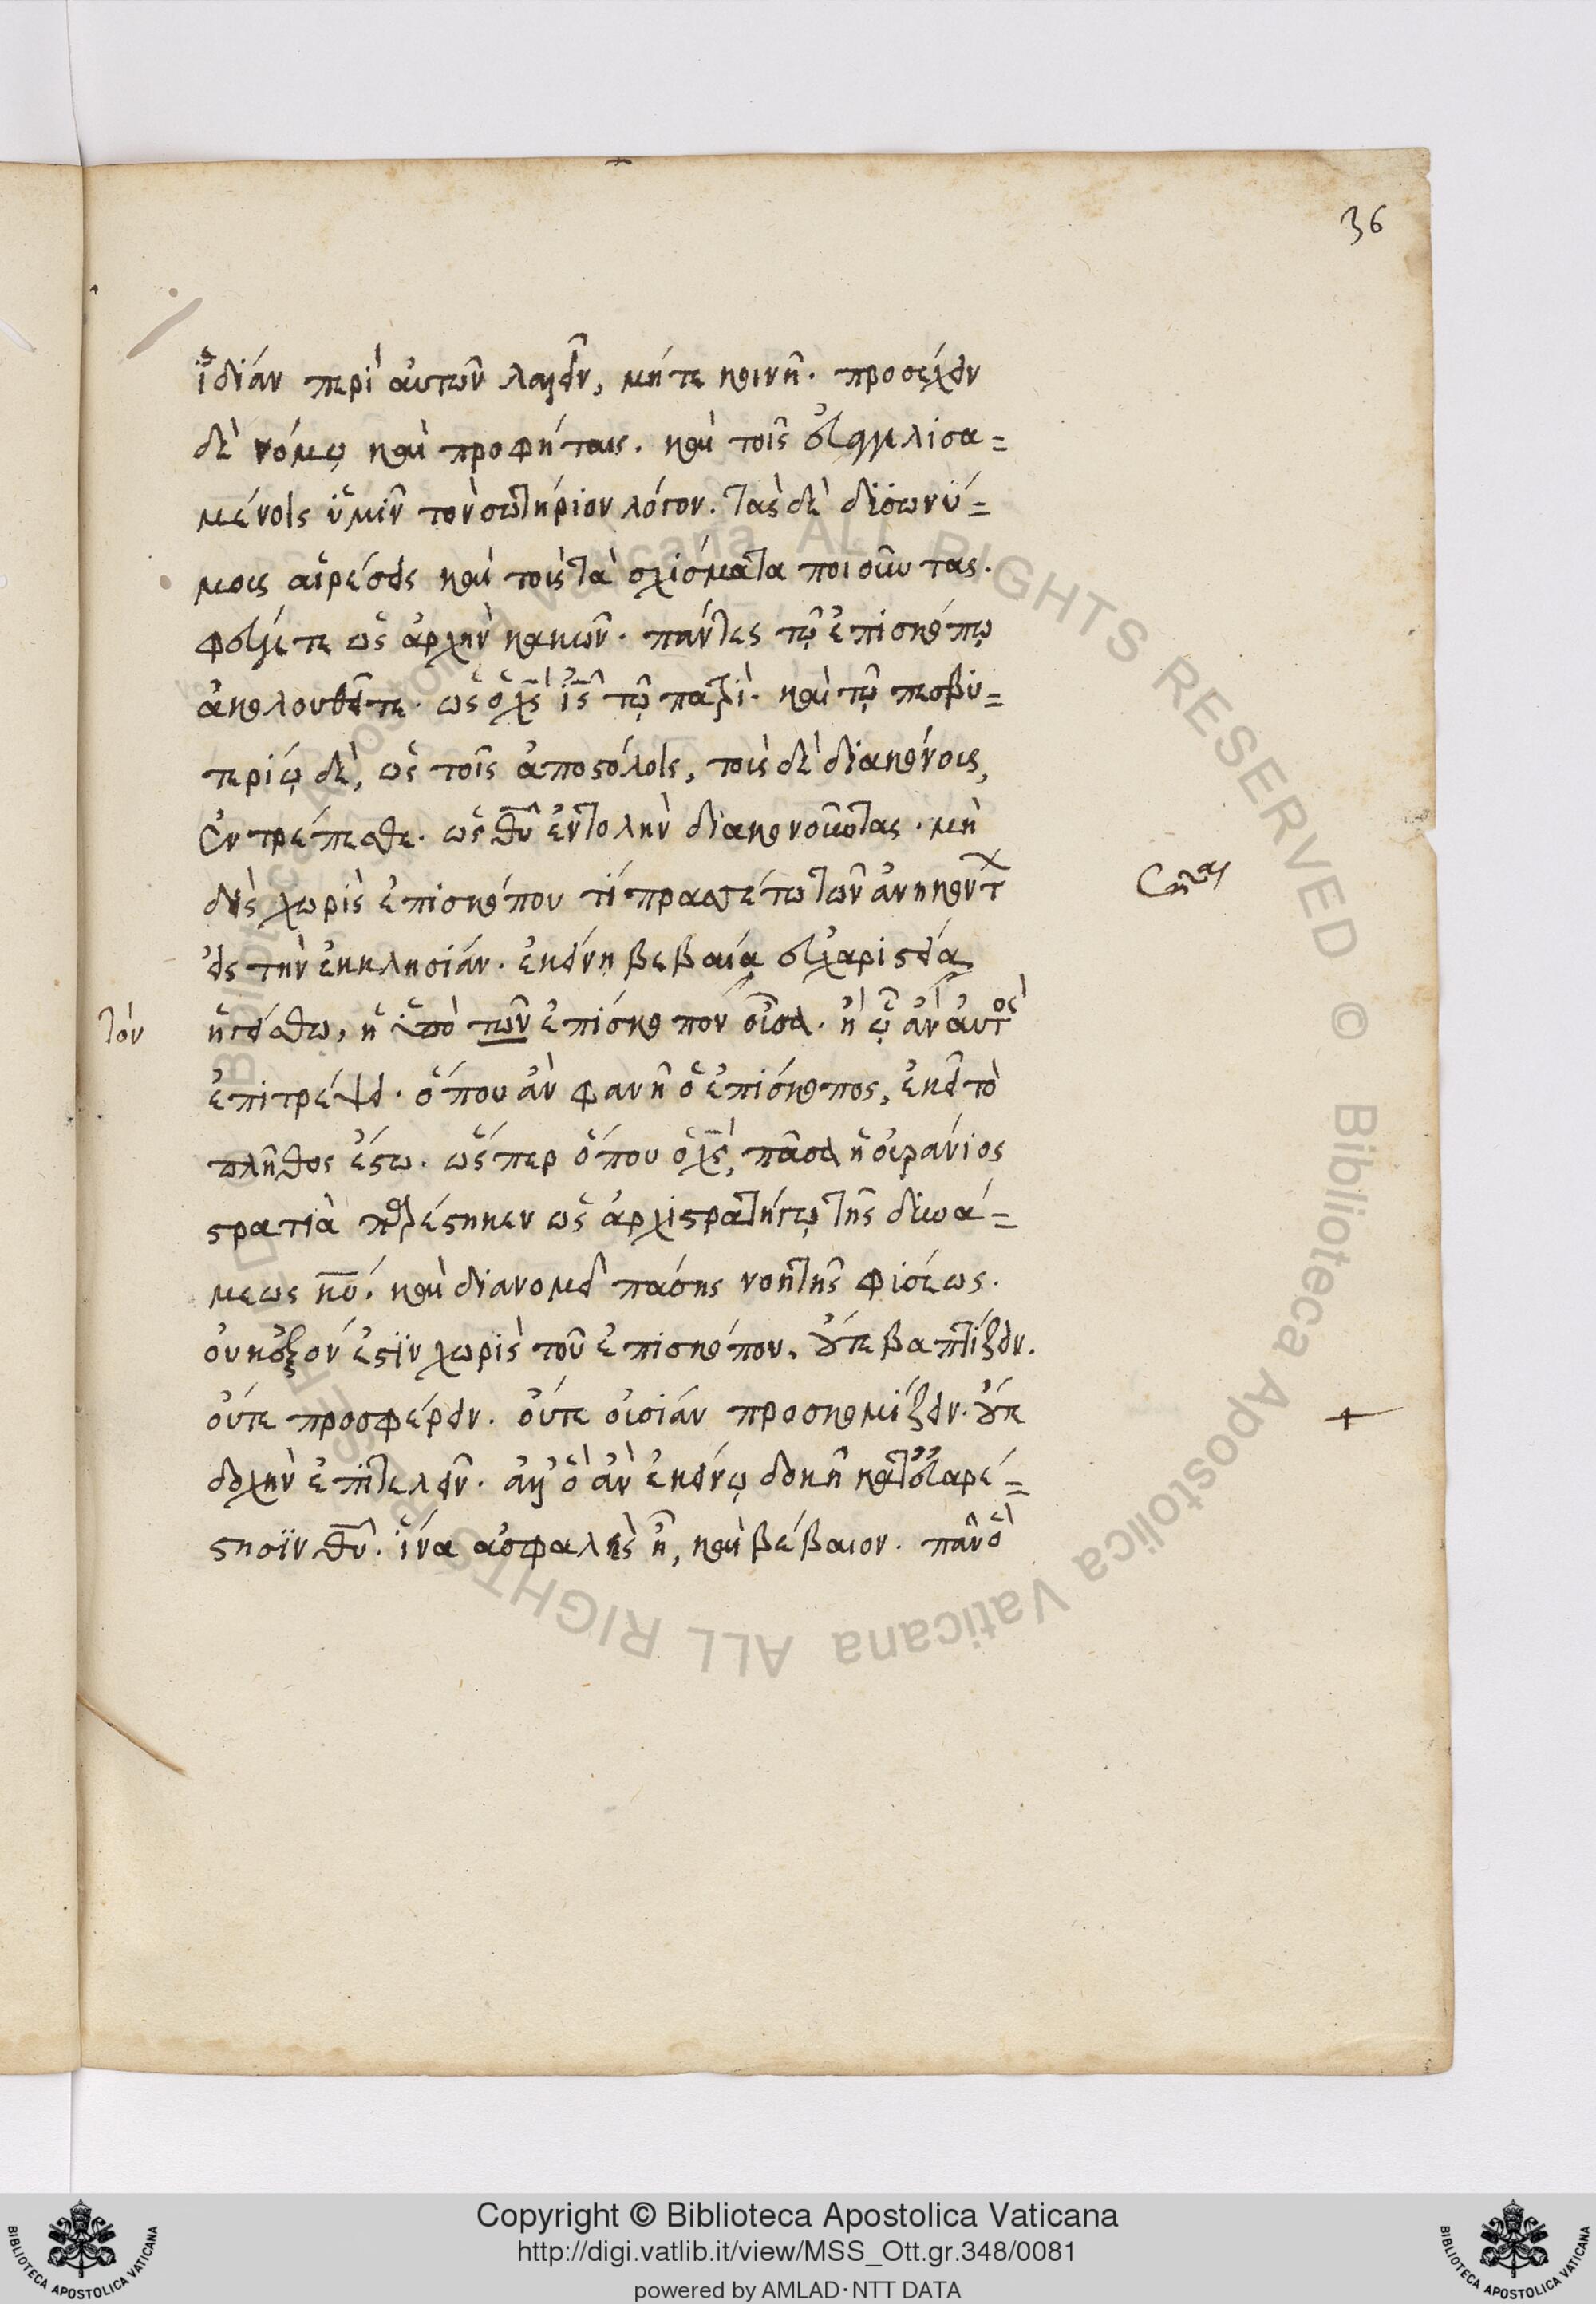 36
ἰδίαν περὶ αὐτῶν λαλεῖν, μήτε κοινῆ. προσέχειν
δὲ νόμῳ καὶ προφήταις. καὶ τοῖς εὐαγγελισα=
μένοις ὑμῖν τὸν σωτήριον λόγον. τὰς δὲ δυσωνύ=
μους αἱρέσεις καὶ τοὺς τὰ σχίσματα ποιοῦντας.
φεύγετε ὡς ἀρχὴν κακῶν. πάντες τῷ ἐπισκόπῳ
ἀκολουθεῖτε. ὡς ὁ χς ις τῷ πατρί. καὶ τῷ πρεσβυ=
τερίῳ δὲ, ὡς τοῖς ἀποστόλοις, τοὺς δὲ διακόνους,
ἐντρέπεσθε. ὡς θυ ἐντολὴν διακονοῦντας. μη
δεὶς χωρὶς ἐπισκόπου τί πρασσέτω τῶν ἀνηκόντ
εἰς τὴν ἐκκλησίαν. ἐκείνη βεβαία εὐχαριστία
τὸν
ἡγείσθω, ἡ ὑπὸ τῶν ἐπίσκοπον οὖσα. ἢ ᾧ ἂν αὐτὸς
ἐπιτρέψει. ὅπου ἂν φανῆ ὁ ἐπίσκοπος, ἐκεῖ τὸ
πλῆθος ἔστω. ὥσπερ ὅπου ὁ χς, πᾶσα ἡ οὐράνιος
στρατιὰ παρέστηκεν ὡς ἀρχιστρατήγῳ τῆς δυνά=
μεως κυ. καὶ διανομεῖ πάσης νοητῆς φύσεως.
οὐκ ἐξόν ἐστιν χωρὶς τοῦ ἐπισκόπου, οὔτε βαπτίζειν.
οὔτε προσφέρειν. οὔτε θυσίαν προσκομίζειν. οὔτε
δοχὴν ἐπιτελεῖν. ἀλλ' ὃ ἂν ἐκείνῳ δοκῆ κατ' εὐαρέ=
στησιν θυ. ἵνα ἀσφαλὲς ἦ, καὶ βέβαιον. πᾶν ὃ
+
Copyright © Biblioteca Apostolica Vaticana
http://digi.vatlib.it/view/MSS_Ott.gr.348/0081
powered by AMLAD·NTT DATA
BIBLIOTECA APOSTOLICA VATICANA
BIBLIOTECA APOSTOLICA VATICANA
© Biblioteca Apostolica Vaticana ALL RIGHTS RESERVED © Biblioteca Apostolica Vaticana ALL RIGHTS RESERVED